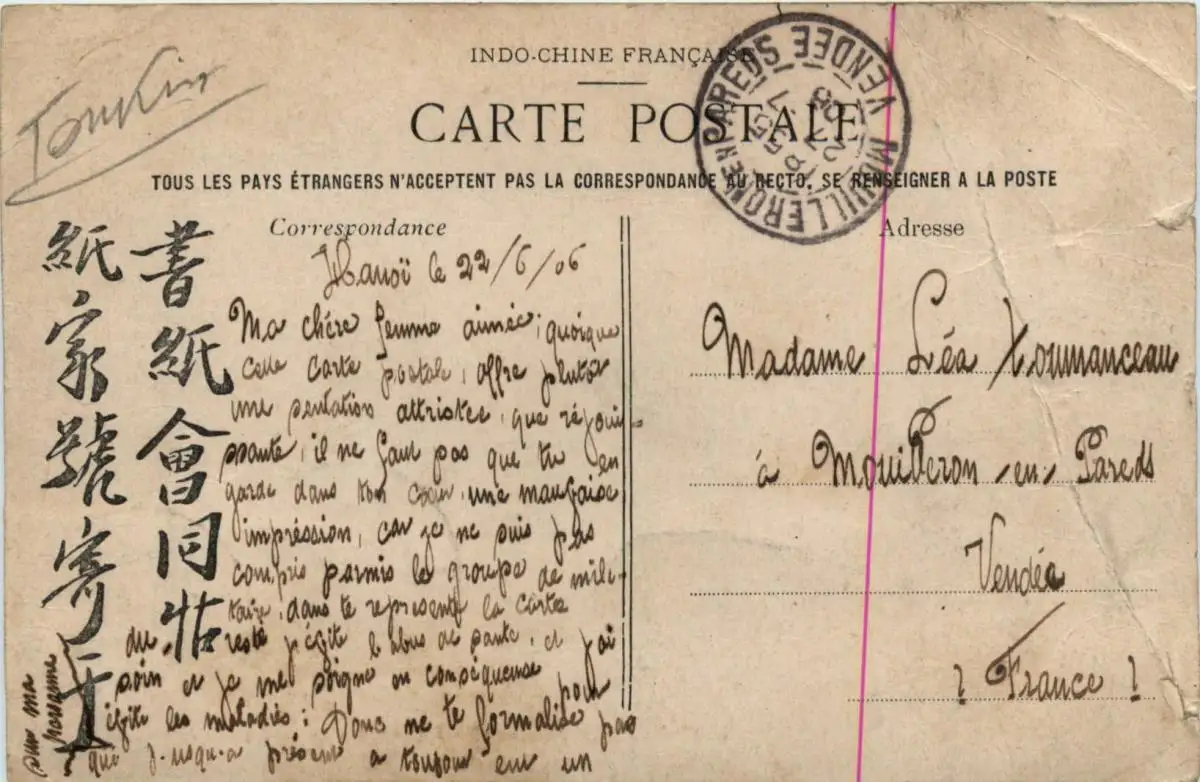 Tonkin
INDO-CHINE FRANÇAISE
CARTE POSTALE
TOUS LES PAYS ÉTRANGERS N'ACCEPTENT PAS LA CORRESPONDANCE AU RECTO, SE RENSEIGNER A LA POSTE
MOUILLERON EN PAREDS VENDÉE
Correspondance
Adresse
書紙會同
紙家號寄
Hanoï le 22/6/06
Ma chère femme aimée, quoique
cette carte postale, offre plutôt
une sentation attristée, que réjouis-
sante, il ne faut pas que tu en
garde dans ton cœur une mauvaise
impréssion, car je ne suis pas
compris parmis le groupe de mili-
taire, dans te represente la carte
du reste l'abus de et j'ai
soin et je me soigne en conséquense pour
les maladies: Donc ne te formalise pas
qui jusqu-a présent a toujours eu un
sur ma
personne
Madame Léa
à Mouilleron-en-Pareds
Vendée
! France !